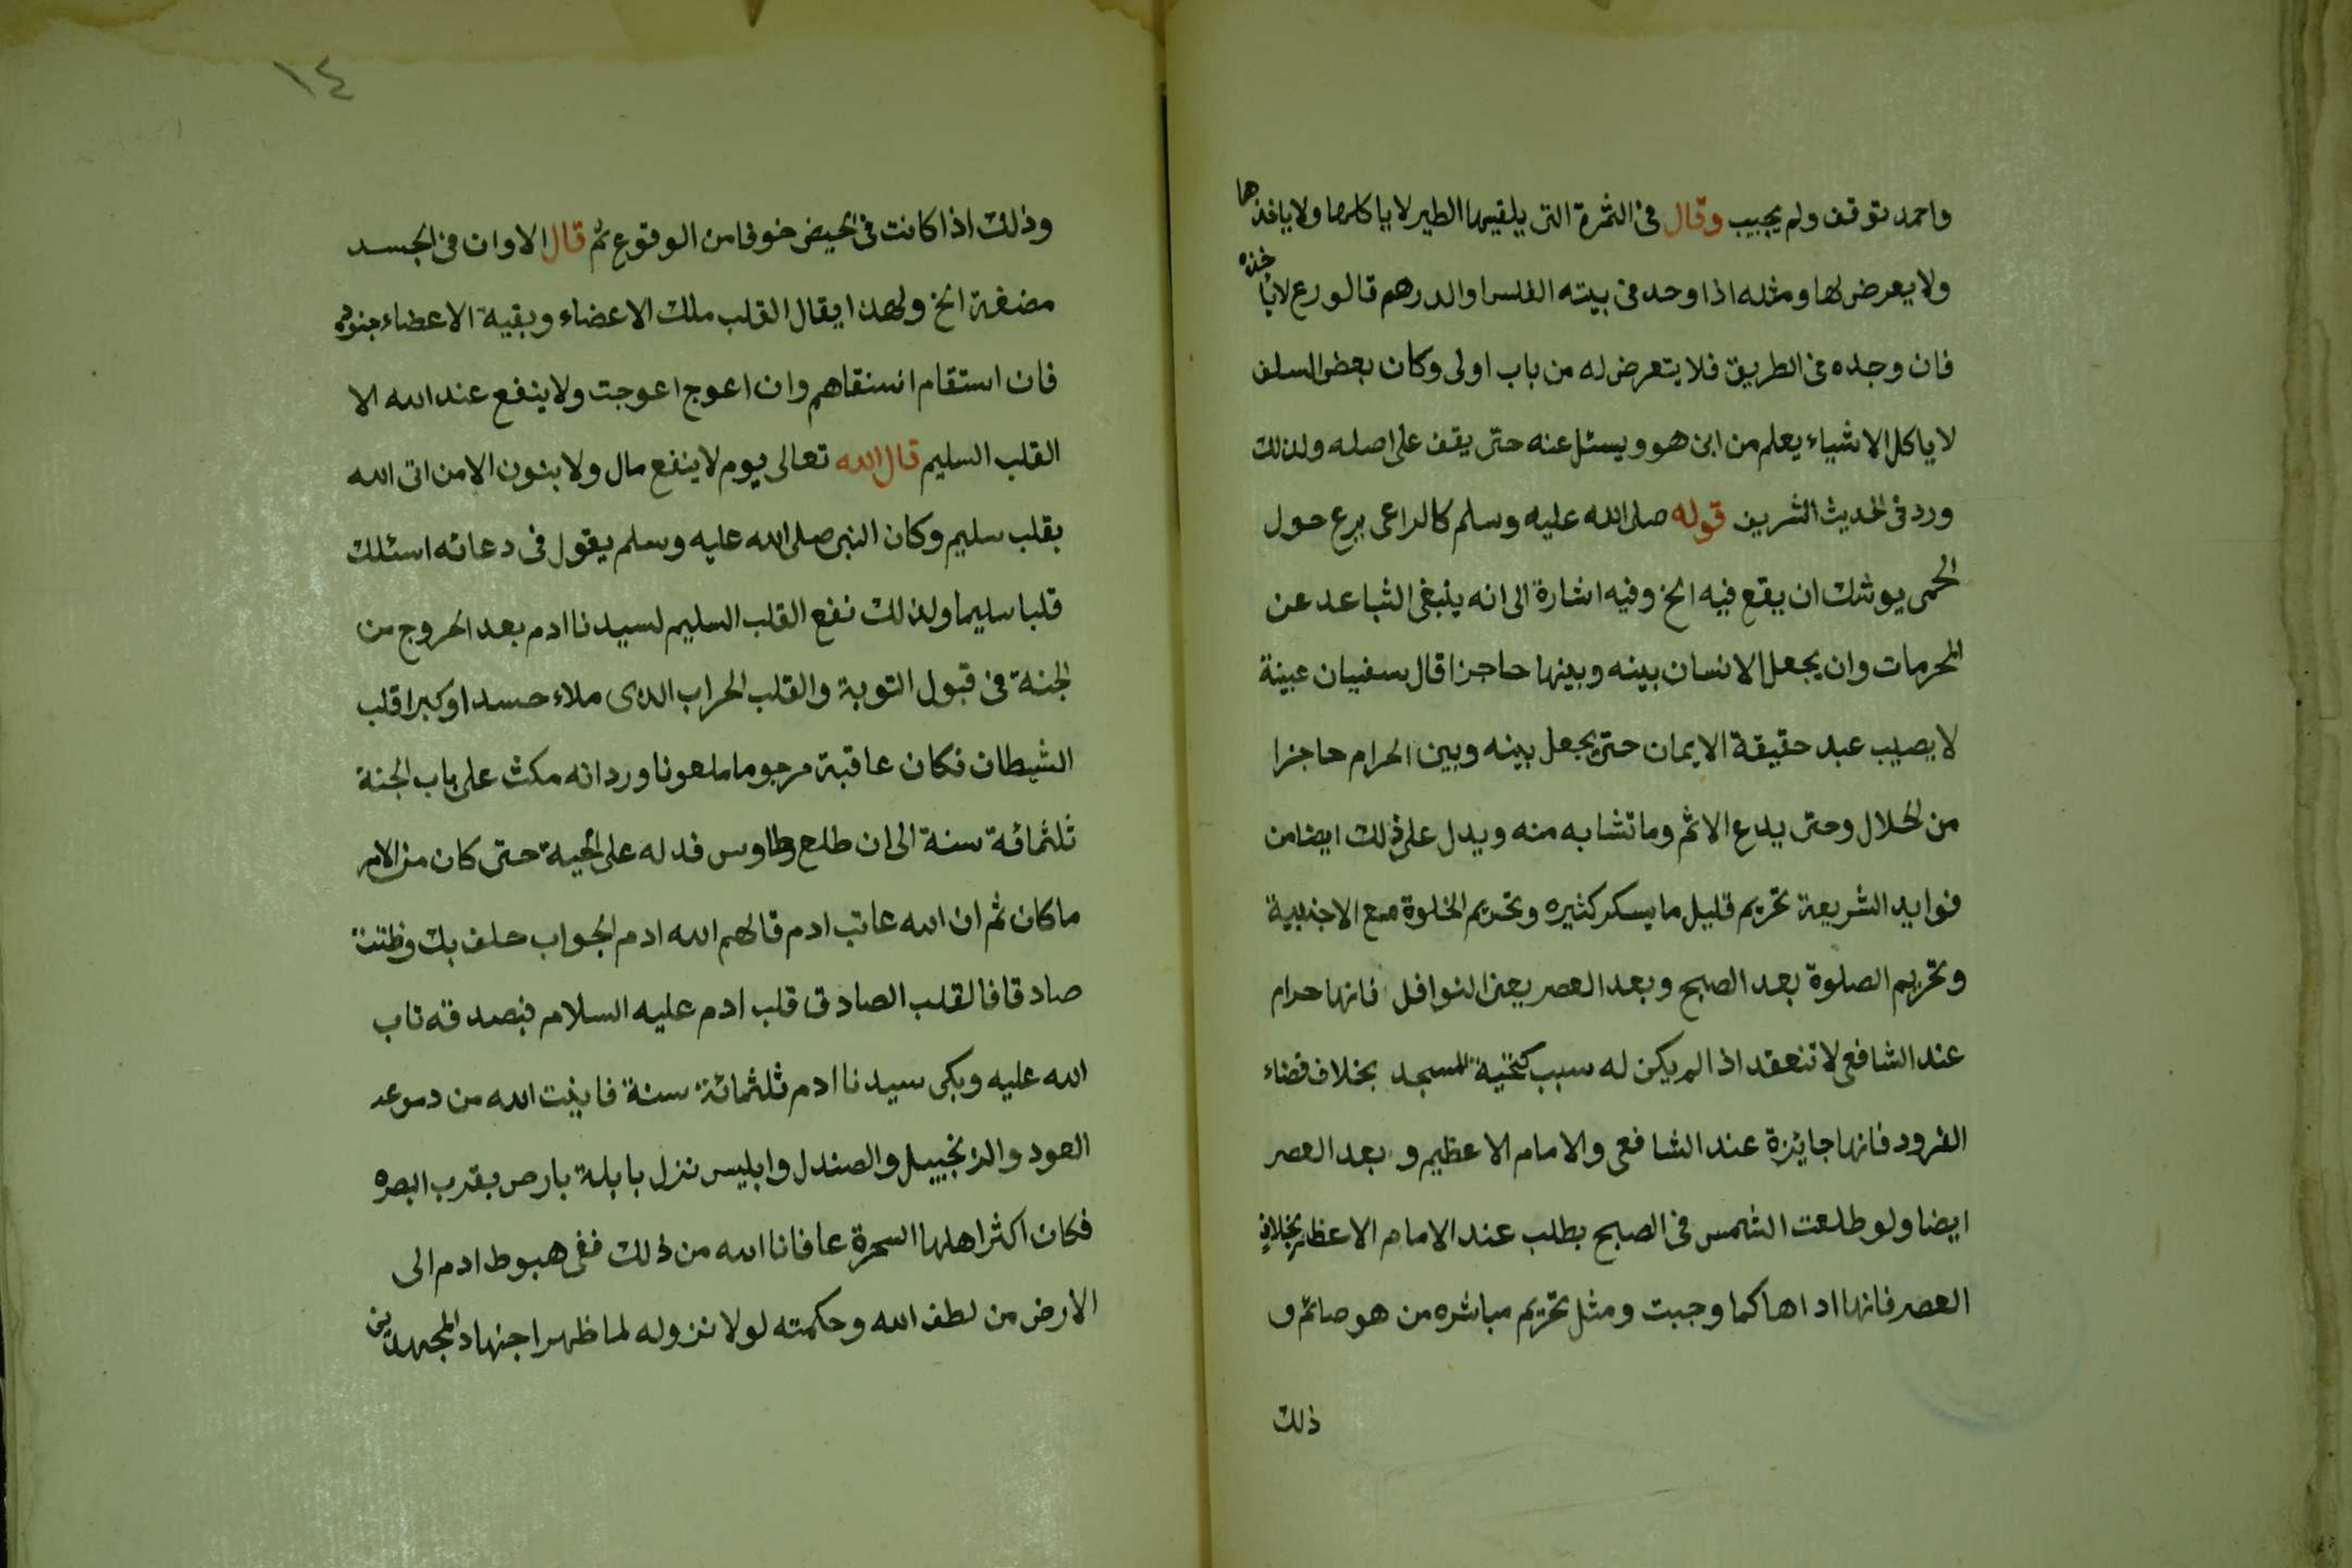 واحمد توقف ولم يجيب وقال فى الثمرة التى يلقيها الطير لا ياكلها ولا ياخذها
ولا يعرض لها ومثله اذا وجد فى بيته الفلس او الدرهم قالورع لا ياخذه
فان وجده فى الطريق فلا يتعرض له من باب اولى وكان بعض السلف
لا ياكل الا شياء يعلم من اين هو ويسئل عنه حتى يقف على اصله ولذلك
ورد فى الحديث الشريف قوله صلى الله عليه وسلم كالراعى يرع حول
الحمى يوشك ان يقع فيه الخ وفيه اشارة الى انه ينبغى التباعد عن
المحرمات وان يجعل الانسان بينه وبينها حاجزا قال سفيان عيينة
لا يصيب عبد حقيقة الايمان حتى يجعل بينه وبين الحرام حاجزا
من الحلال وحتى يدع الاثم وما تشابه منه ويدل على ذلك ايضا من
فوايد الشريعة تحريم قليل ما يسكر كثيره وتحريم الخلوة مع الاجنبية
وتحريم الصلوة بعد الصبح وبعد العصر يعنى النوافل فانها حرام
عند الشافعى لا تنعقد اذا لم يكن له سبب كتحية المسجد بخلاف قضاء
الفرود فانها جايزة عند الشافعى والامام الاعظيم و بعد العصر
ايضا ولو طلعت الشمس فى الصبح بطلب عند الامام الاعظم بخلاف
العصر فانها اداها كما وجبت ومثل تحريم مباشره من هو صائم و
ذلك
١٤
وذلك اذا كانت فى الحيض خوفا من الوقوع ثم قال الا وان فى الجسد
مضغة الخ ولهذا يقال القلب ملك الاعضاء وبقية الاعضاء جنوده
فان استقام استقاهم وان اعوج اعوجت ولا ينفع عند الله الا
القلب السليم قال الله تعالى يوم لا ينفع مال ولا بنون الا من اتى الله
بقلب سليم وكان النبى صلى الله عليه وسلم يقول فى دعائه اسئلك
قلبا سليما ولذلك نفع القلب السليم لسيدنا ادم بعد الخروج من
الجنة فى قبول التوبة والقلب الخراب الذى ملاء حسدا وكبرا قلب
الشيطان فكان عاقبة مرجوما ملعونا ورد انه مكث على باب الجنة
ثلثمائة سنة الى ان طلع وطاوس فدله على الحية حتى كان من الامر
ما كان ثم ان الله عاتب ادم قالهم الله ادم الجواب حلف بك وظننت
صادقا فالقلب الصادق قلب ادم عليه السلام فبصدقه تاب
الله عليه وبكى سيدنا ادم ثلثمائة سنة فاينت الله من دموعه
العود والزنجبيل والصندل وابليس نزل بابلة بارص بقرب البصره
فكان اكثر اهلها السحرة عافانا الله من ذلك ففى هبوط ادم الى
الارض من لطف الله وحكمته لولا نزوله لما ظهر اجتهاد المجتهدين